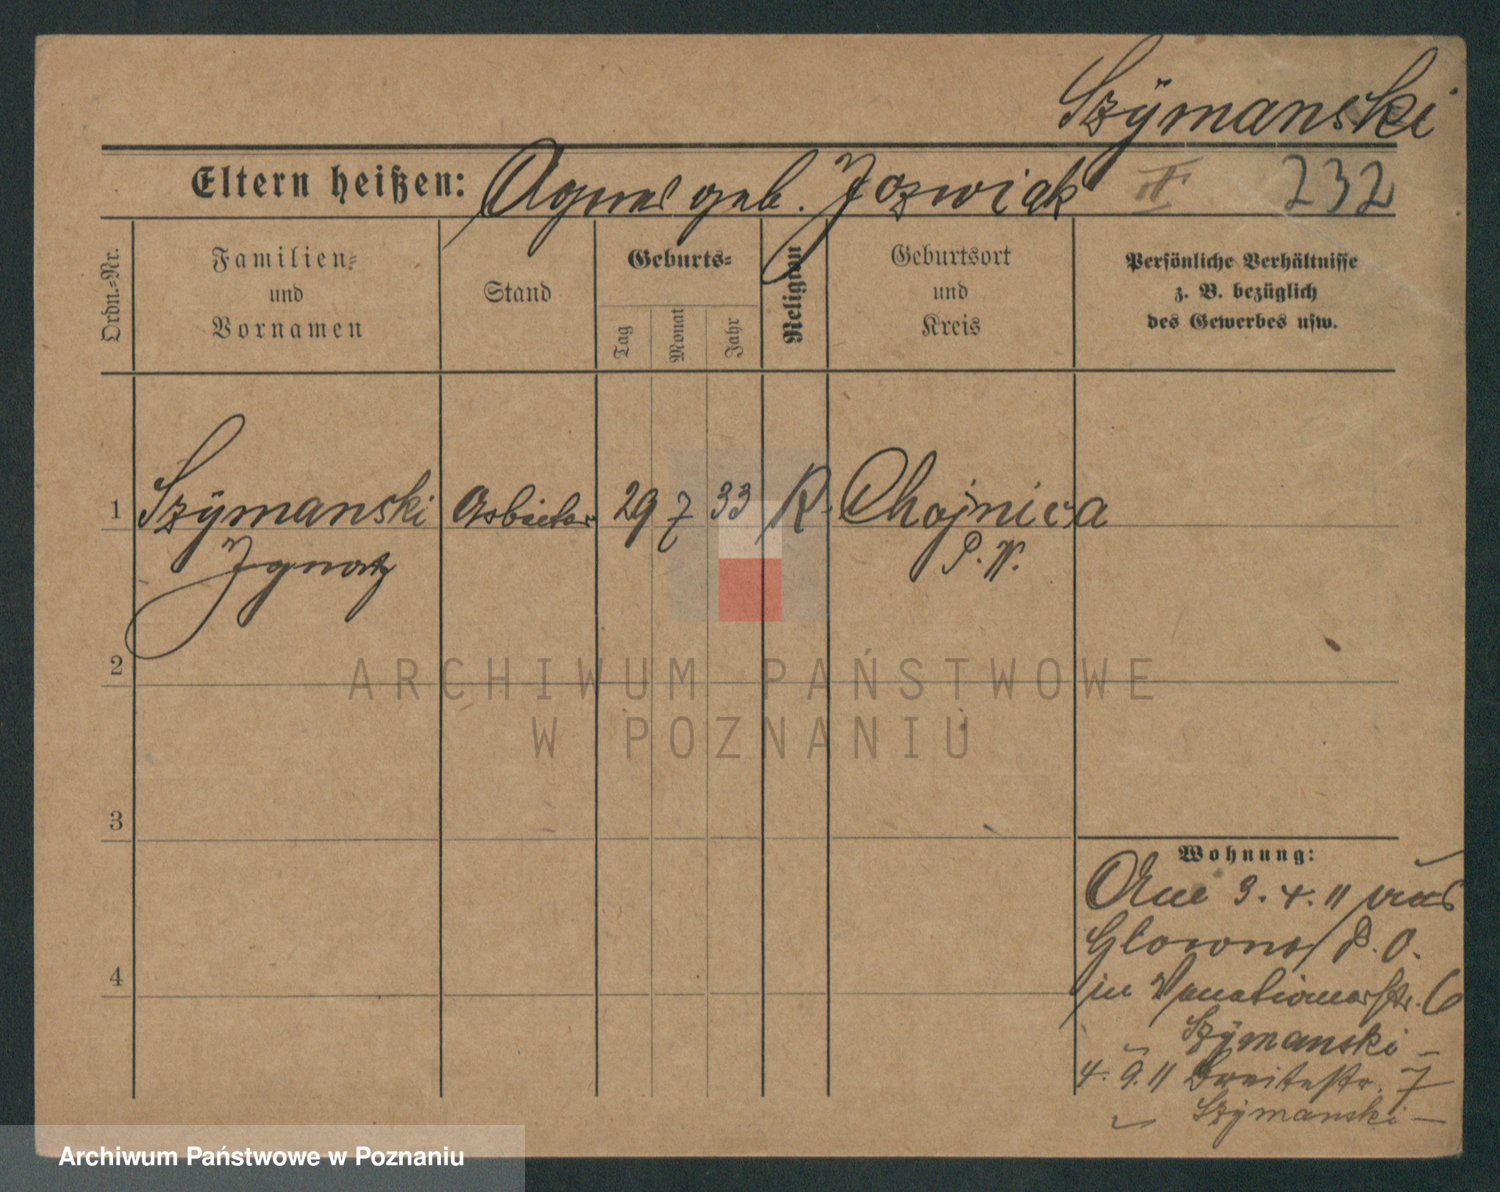 Szÿmanski
Eltern heißen: Agnes geb. Jozwiak II 232
Ordn.-Nr.
Familien-
und
Vornamen
Stand
Geburts-
Tag
Monat
Jahr
Religion
Geburtsort
und
Kreis
Persönliche Verhältnisse
z. B. bezüglich
des Gewerbes usw.
1 Szÿmanski Arbeiter 29 7 33 R. Chojnica
Ignatz P. W.
2
ARCHIWUM PAŃSTWOWE
W POZNANIU
3
Wohnung:
3. 4. 11 aus
Glowno P. O.
in Venetianerstr. 6
Szÿmanski
4
4. 9. 11 Breitestr. 7
Szÿmanski
Archiwum Państwowe w Poznaniu